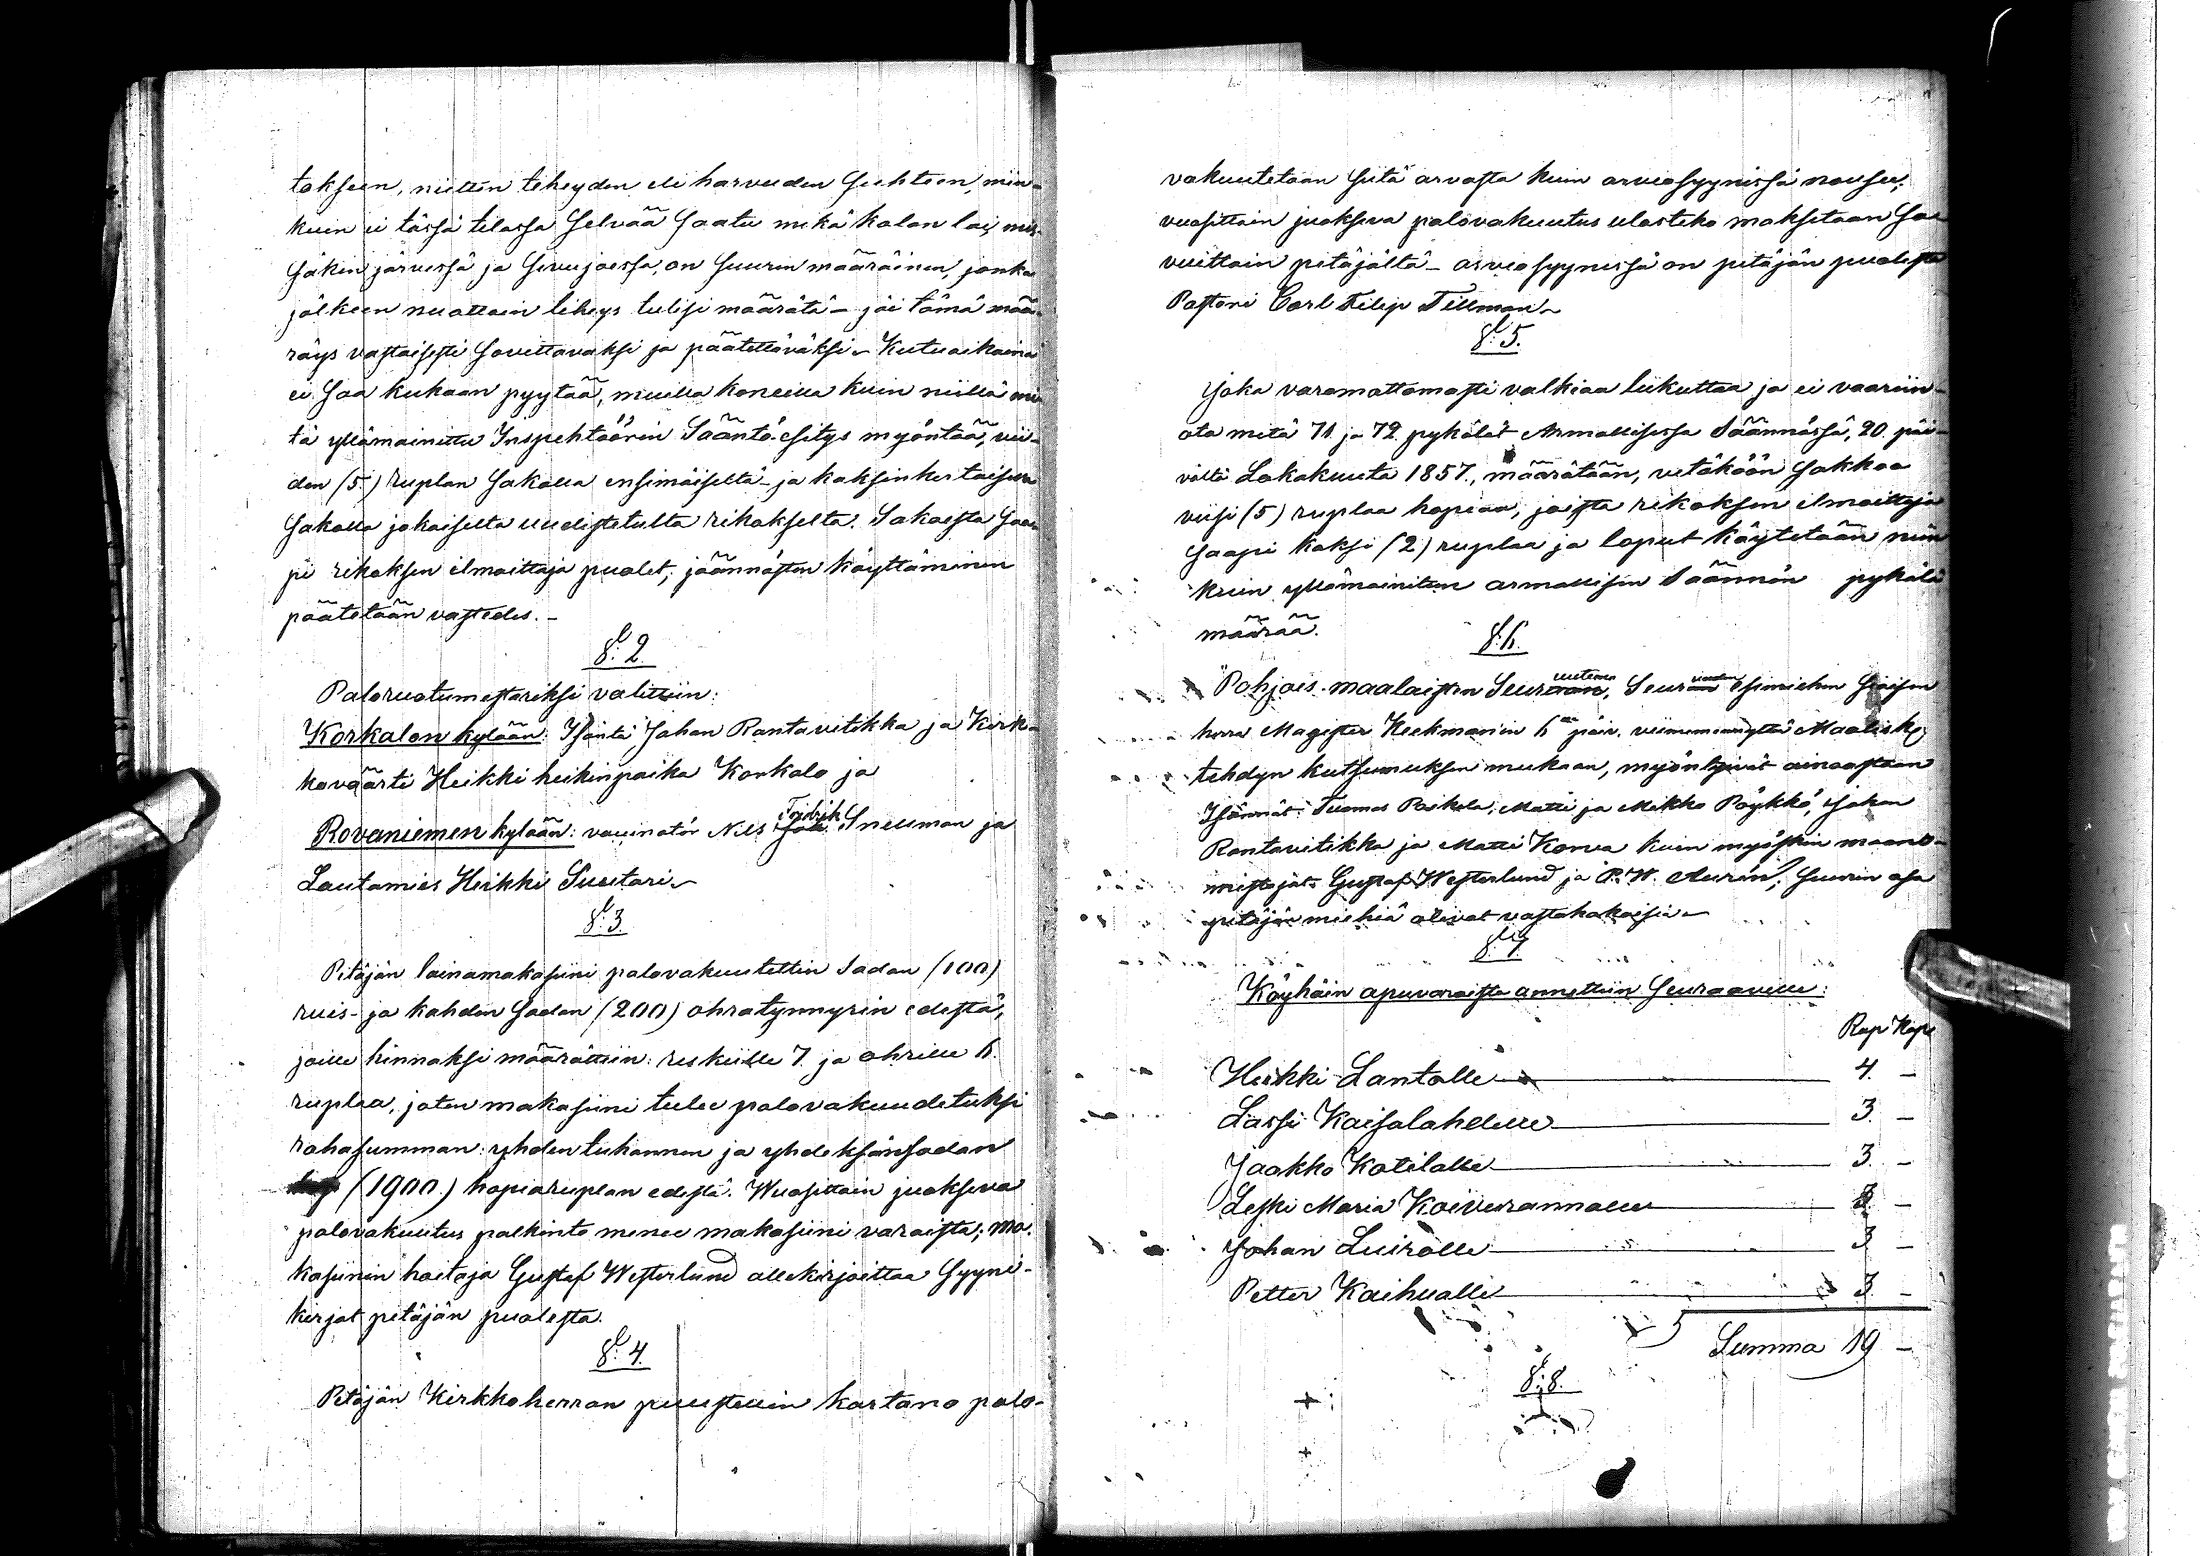 tokseen, niitten tiheyden eli harvuuden suhteen, niin-
kuin ei tässä tilassa selvää saatu mikä kalan laj mis-
säkin järvessä ja sivujoessa, on suurin määräinen, jonka
jälkeen nuottain tiheys tulisi määrätä - jäi tämä mää-
räys vastaisesti sovittavaksi ja päätettäväksi. Kutuaikaina
ei saa kukaan pyytää, muilla koneilla kuin niillä mi-
tä yllämainittu Inspehtöörin Sääntö-esitys myöntää, vii-
den (5.) ruplan sakolla ensimäiseltä- ja kaksinkertaisella
sakolla jokaiselta uudistetulta rikokselta. Sakoista saa-
pi rikoksen ilmoittaja puolet; jäännöksen käyttäminen
päätetään vastedes. -
§. 2.
Paloruotumestariksi valittiin:
Korkalon kylään: Isäntä Johan Rantavitikka ja Kirk-
koväärti Heikki heikinpoika Korkalo ja
Rovaniemen kylään: Nils Fredrik Snellman ja
Lautamies Heikki Suutari
§. 3.
Pitäjän lainamakasiini palovakuutettiin Sadan (100)
ruis- ja kahden sadan (200) ohratynnyrin edestä,
joille hinnaksi määrättiin: reskiille 7. ja ohrille 6.
ruplaa, joten makasiini tulee palovakuudetuksi
rahasumman: yhden tuhannen ja yhdeksänsadan
(1900.) hopiaruplan edestä. Wuosittain juokseva
palovakuutus palkinto menee makasiini varoista; ma-
kasiinin hoitaja Gustaf Westerlund allekirjoittaa syyni-
kirjat pitäjän puolesta.
§. 4.
Pitäjän Kirkkoherran puustellin kartano palo-
vakuutetaan siitä arvosta kuin arviosyynissä nousee;
vuosittain juokseva palovakuutus ulosteko maksetaan sa-
vuittain pitäjältä - arviosyynissä on pitäjän puolesta
Pastori Carl Filip Tillman
§. 5.
Joka varomattomasti valkiaa liikuttaa ja ei vaariin-
ota mitä 71 ja 72 pykälät Armollisessa Säännössä, 20. päi-
vältä Lokakuuta 1857., määrätään, vetäköön sakkoa
viisi (5) ruplaa hopiaa, joista rikoksen ilmoittaja
saapi kaksi (2) ruplaa ja loput käytetään niin
kuin yllämainitun armollisen Säännön pykälä
määrää.
§. 6.
Pohjois-maalaisten Seuraan, Seuran esimiehen
herra Magister Heckmanin 6 päiv. Maalisk.
tehdyn kutsumuksen mukaan, myöntyivät ainoastaan
Isännät: Tuomas Paikola, Matti ja Mikko Pöykkö, Johan
Rantavitikka ja Matti Korva kuin myöskin maanb-
mistajat Gustaf Westerlund ja P. W. Aurén; suurin osa
pitäjän miehiä olivat vastahakoisia
§. 7.
Köyhäin apuvaroista annettiin seuraaville:
Rup Kope
Heikki Lantolle 4. -
Lassi Kaisalahdelle 3. -
Jaakko Kotilalle 3. -
Leski Maria Koivurannalle 3. -
Johan Luirolle 3. -
Petter Kaihualle 3. -
Summa 19 -
§. 8.